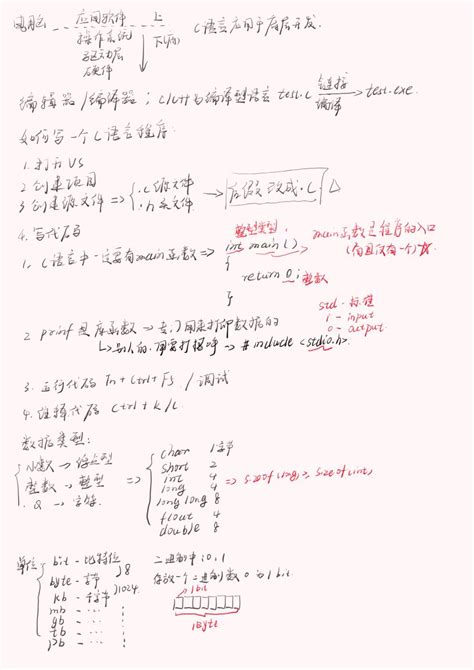 应用软件 上
操作系统
驱动层
硬件
下
C语言应用于底层开发.
编辑器/编译器; C/C++为编译型语言 test.c 链接 编译 → test.exe
如何写一个C语言程序:
1. 打开VS
2. 创建项目
3. 创建源文件 ⇒ { .c 源文件 .h 头文件 → 后缀改成.C
4. 写代码
1. C语言中一定要有main函数 ⇒ int main()
整型类型
main函数是程序的入口
(有且仅有一个)
{
return 0; 整数
}
std - 标准
i - input
o - output
2. printf 是库函数 → 专门用来打印数据的
↳ 别人的,用要打招呼 → #include <stdio.h>
3. 运行代码 Fn + Ctrl + F5 / 调试
4. 代码 Ctrl + K/C
数据类型:
小数 → 浮点型
整数 → 整型
字符
⇒
char 1字节
short 2
int 4
long 4
long long 8
float 4
double 8
⇒ sizeof(long) ≥ sizeof(int)
单位
bit - 比特位
byte - 字节 } 8
kb - 千字节 } 1024
mb -
gb -
tb -
pb -
二进制中: 0, 1
存放一个二进制数 0 为 1 bit.
1bit
1Byte